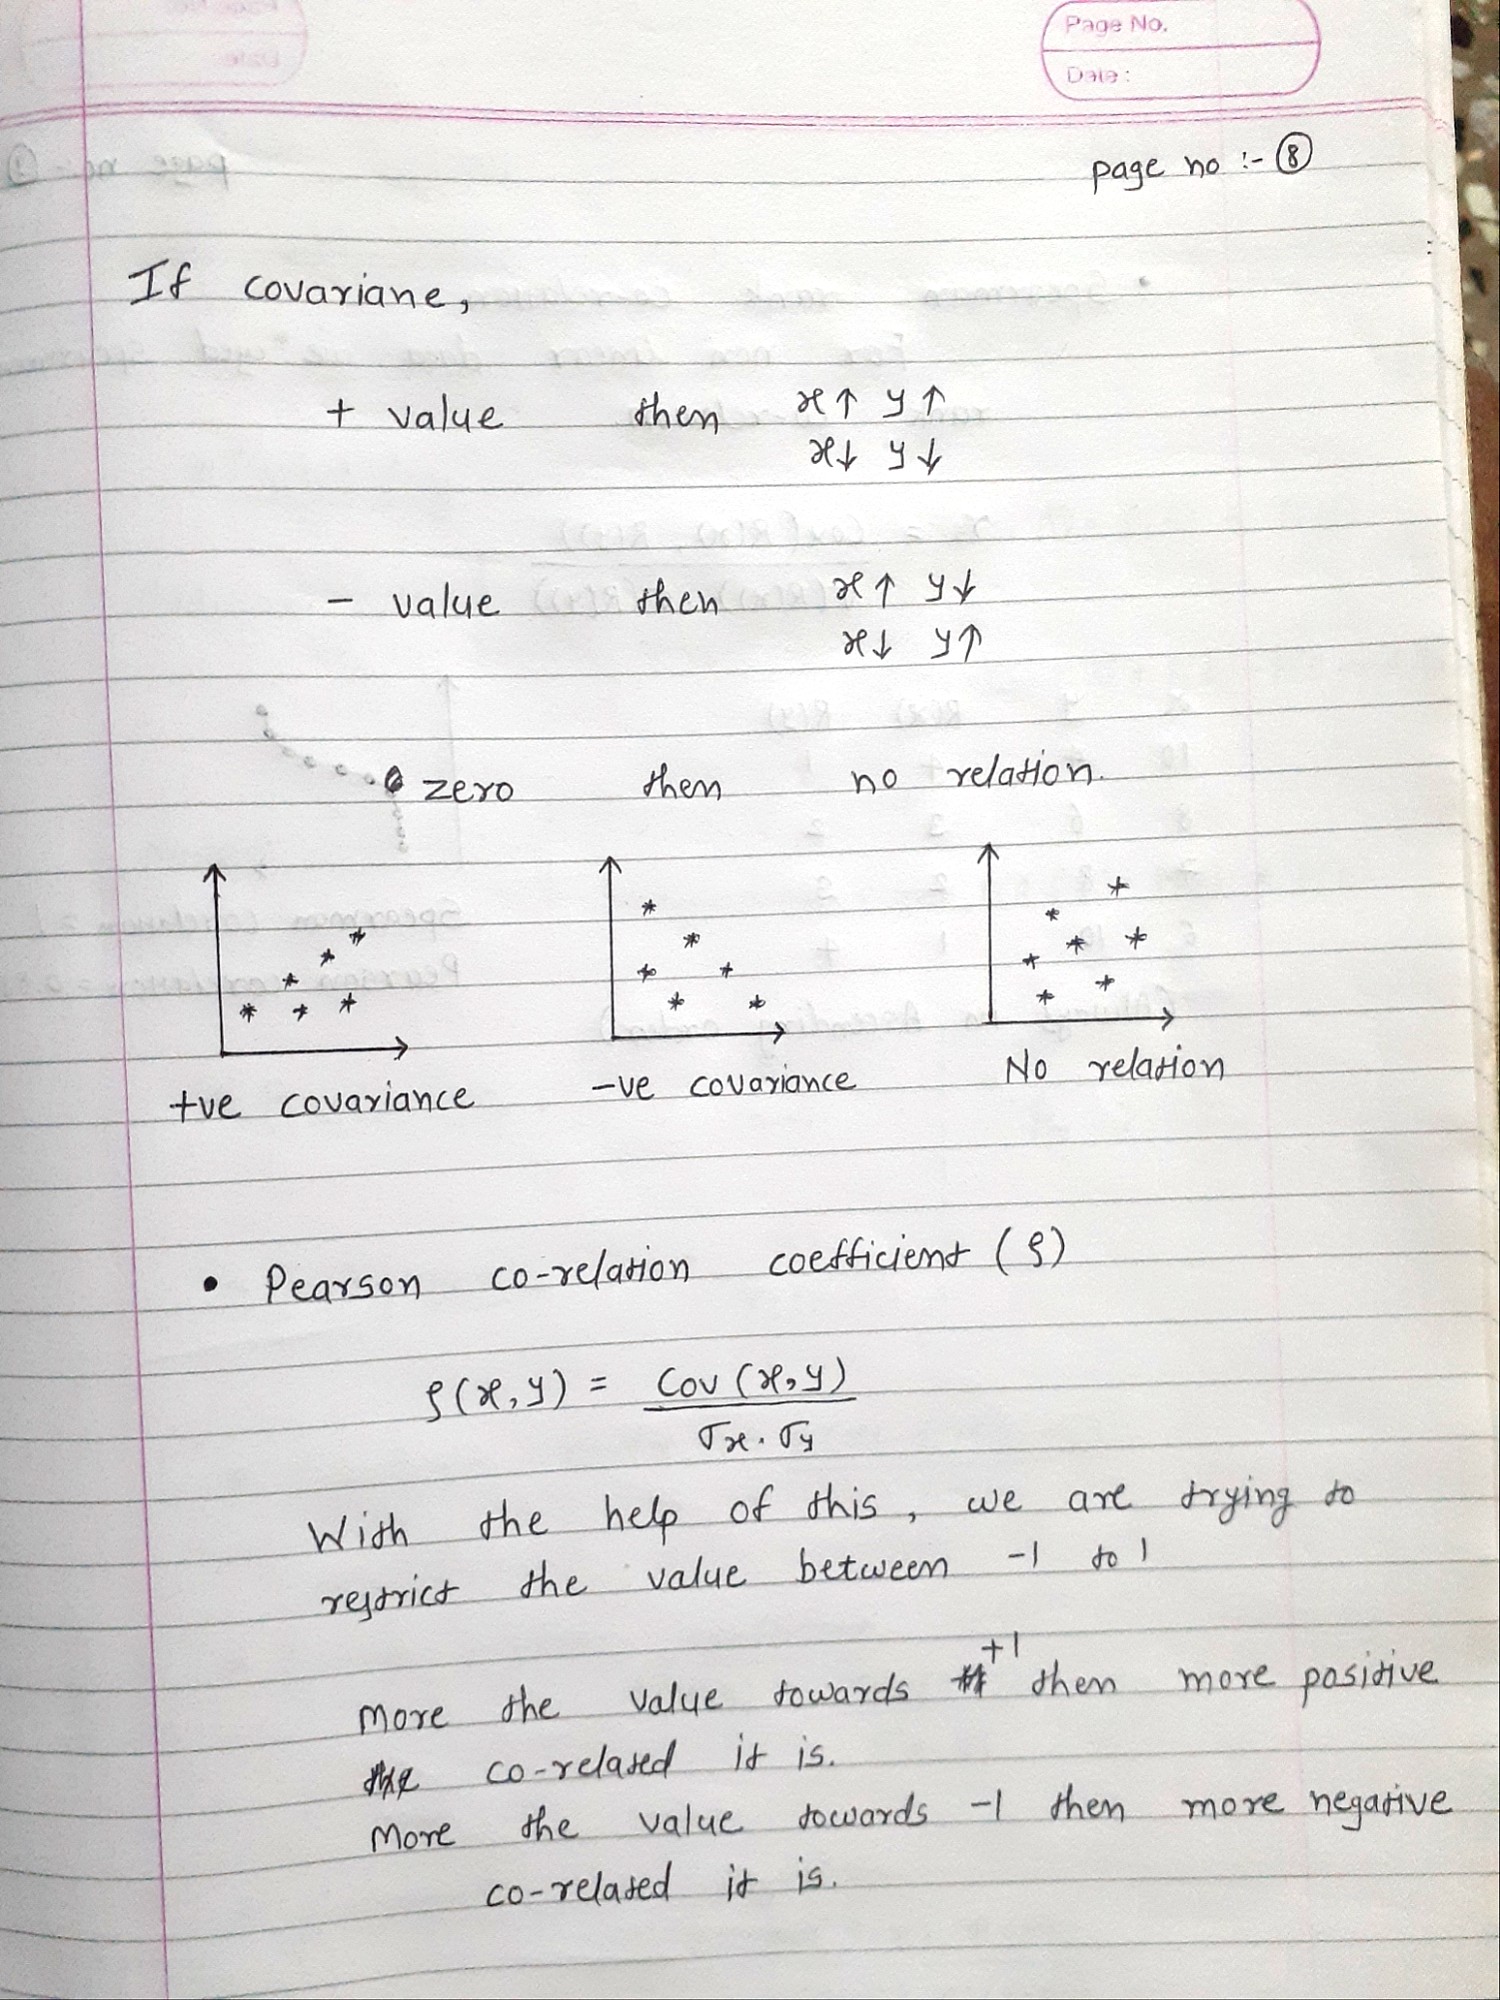 Page No.
Date:
page no :- ⑧
If covariane,
+ value then x↑ y↑
x↓ y↓
- value then x↑ y↓
x↓ y↑
zero then no relation.
+ve covariance -ve covariance No relation
• Pearson co-relation coefficient (ρ)
ρ(x,y) = Cov (x,y)
σx . σy
With the help of this, we are trying to
restrict the value between -1 to 1
+1
More the value towards then more positive
co-related it is.
More the value towards -1 then more negative
co-related it is.